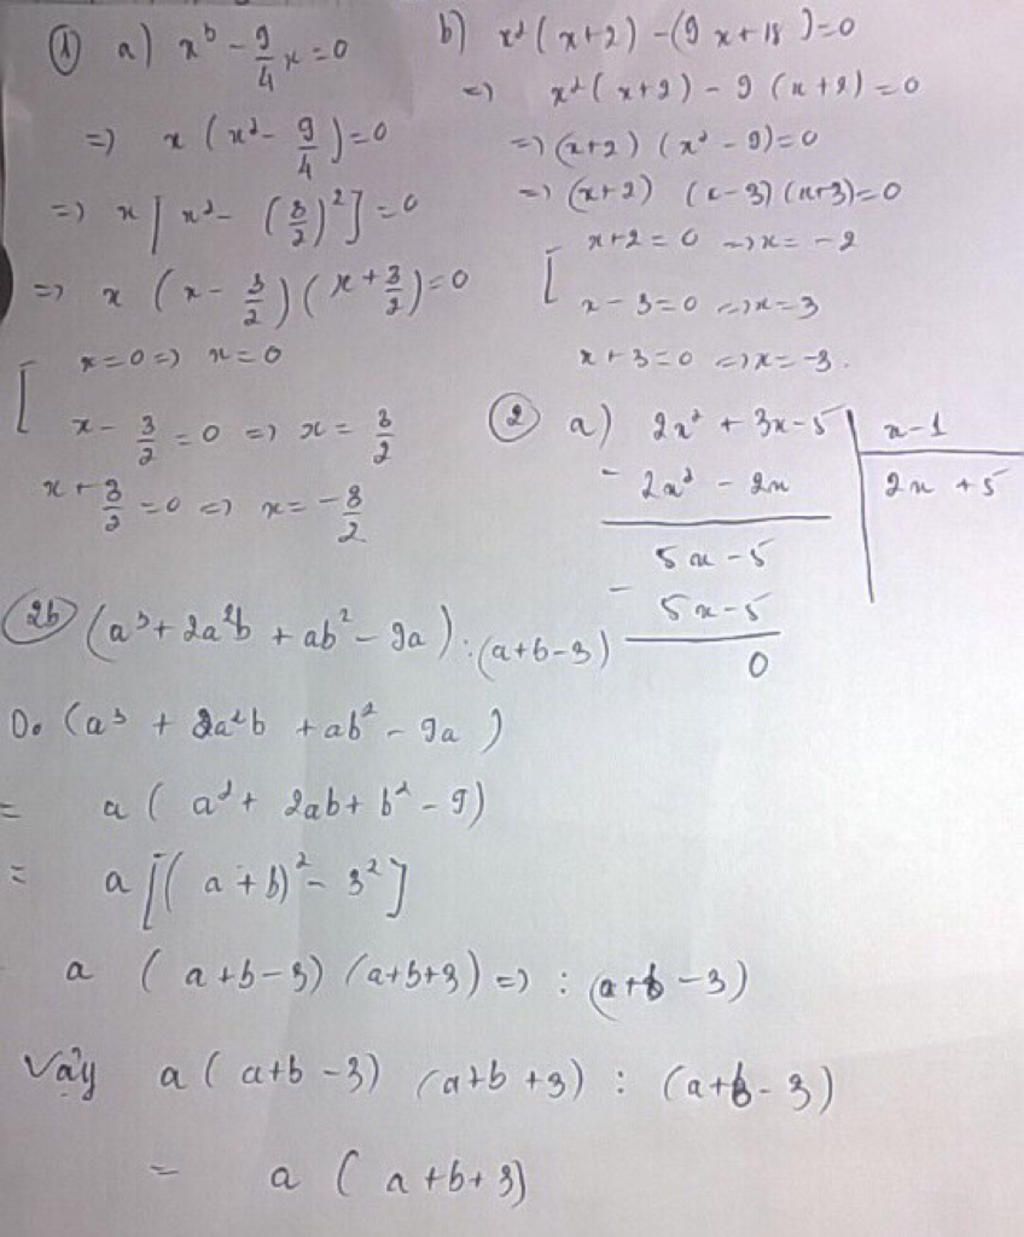 ① a) x³ - 9/4 x = 0
=> x (x² - 9/4) = 0
=> x [x² - (3/2)²] = 0
=> x (x - 3/2)(x + 3/2) = 0
[ x = 0 => x = 0
x - 3/2 = 0 => x = 3/2
x + 3/2 = 0 => x = -3/2
b) x²(x+2) - (9x+18) = 0
=> x²(x+2) - 9(x+2) = 0
=> (x+2)(x² - 9) = 0
=> (x+2)(x-3)(x+3) = 0
[ x+2 = 0 => x = -2
x - 3 = 0 => x = 3
x + 3 = 0 => x = -3.
② a) 2x² + 3x - 5 | x - 1
- 2x² - 2x | 2x + 5
5x - 5
- 5x - 5
0
2b (a³ + 2a²b + ab² - 9a) : (a+b-3)
Do (a³ + 2a²b + ab² - 9a)
= a (a² + 2ab + b² - 9)
= a [(a+b)² - 3²]
a (a+b-3) (a+b+3) => : (a+b-3)
Vậy a (a+b-3) (a+b+3) : (a+b-3)
= a (a+b+3)